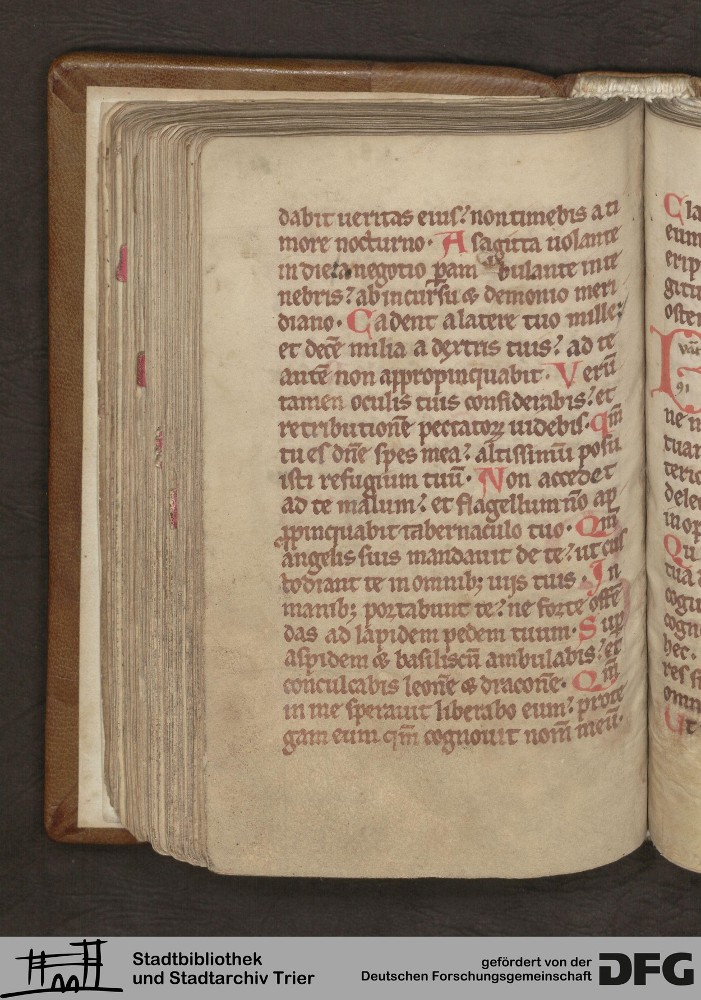 dabit ueritas eius? non timebis a ti
more nocturno. A sagitta uolante
in die a negotio p̱am bulante inte
nebris? ab incursu & demonio meri
diano. Cadent a latere tuo mille;
et decē milia a dextris tuis? ad te
autē non appropinquabit. Verū
tamen oculis tuis considerabis? et
retributionē peccatoꝝ uidebis. Qm̄
tu es dn̄e spes mea? altissimū posu
isti refugium tuū. Non accedet
ad te malum? et flagellum nō ap
ꝓpinquabit tabernaculo tuo. Qm̄
angelis suis mandauit de te? ut cus
todiant te in omnib; uijs tuis. In
manib; portabunt te? ne forte offē
das ad lapidem pedem tuum. Sup̱
aspidem & basiliscū ambulabis? et
conculcabis leonē & draconē. Qm̄
in me sperauit liberabo eum? prote
gam eum qm̄ cognouit nom̄ meū.
Cla
eum
erip
gitu
osten
ne n
tuar
terio
dele
in op
Qu
tua
cogn
hec.
res si
omn
Ut
Stadtbibliothek
und Stadtarchiv Trier
gefördert von der
Deutschen Forschungsgemeinschaft
DFG